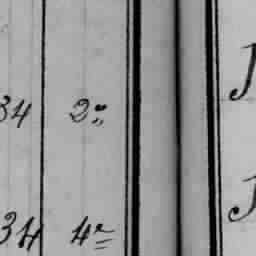 34 2º J
34 4º J